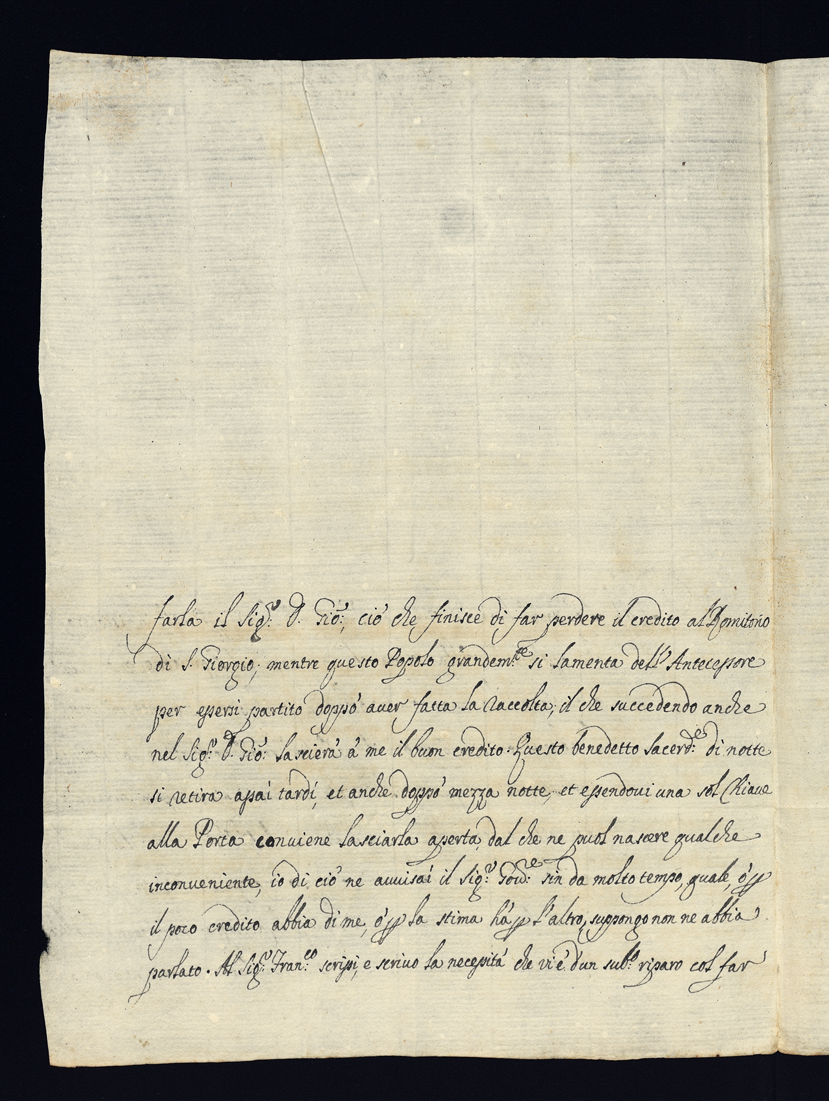 farla il Sig.r D. Gio:, ciò che finisce di far perdere il credito al Romitorio
di S. Giorgio; mentre questo Popolo grandem.te si lamenta dell'Antecessore
per essersi partito doppò aver fatta la raccolta; il che succedendo anche
nel Sig.r D. Gio: lascierà à me il buon credito. Questo benedetto Sacerd.e di notte
si retira assai tardi, et anche doppò mezza notte; et essendovi una sol Chiave
alla Porta conviene lasciarla aperta, dal che ne puol nascere qualche
inconveniente, io di ciò ne avvisai il Sig.r Gov.re sin da molto tempo, quale, ò p
il poco credito abbia di me, ò p la stima hà p l'altro, suppongo non ne abbia
parlato. Al Sig.r Fran.co scrissi, e scrivo la necessità che vi è d'un sub.o riparo col far